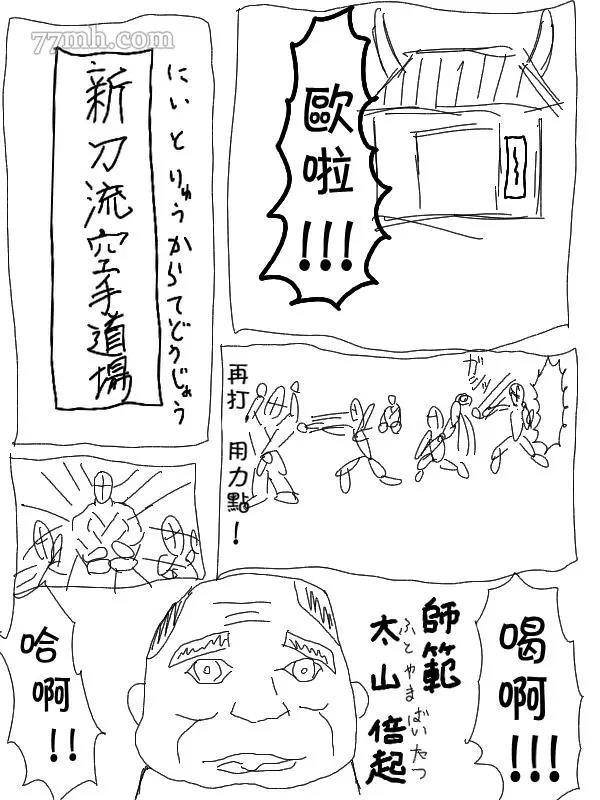 77mh.com
歐啦!!!
新刀流空手道場
にいとりゅうからてどうじょう
ガシッ
再打
用力點！
喝啊!!!
師範
太山倍起
ふとやまばいたつ
哈啊!!